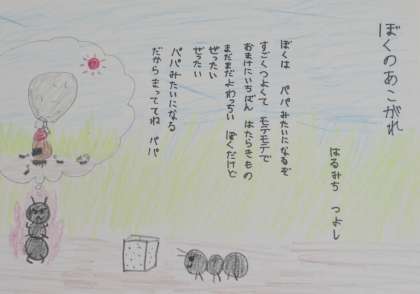 ぼくのあこがれ
はるみち つよし
ぼくは パパ みたいになるぞ
すごくつよくて モテモテで
おまけにいちばん はたらきもの
まだまだよわっちい ぼくだけど
ぜったい
ぜったい
パパみたいになる
だから まっててね パパ